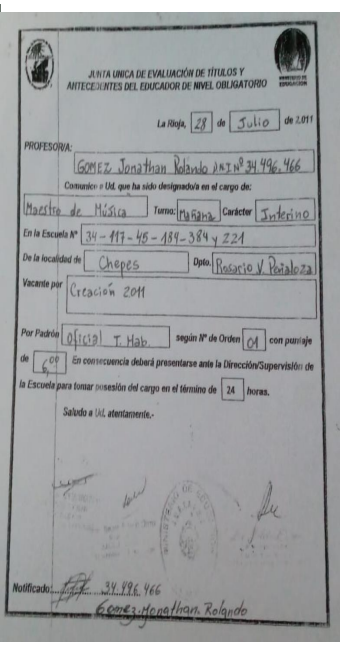 JUNTA UNICA DE EVALUACIÓN DE TÍTULOS Y
ANTECEDENTES DEL EDUCADOR DE NIVEL OBLIGATORIO
MINISTERIO DE
EDUCACION
La Rioja, 28 de Julio de 2.011
PROFESOR/A:
GOMEZ Jonathan Rolando D.N.I Nº 34.496.466
Comunico a Ud. que ha sido designado/a en el cargo de:
Maestro de Música Turno: Mañana Carácter Interino
En la Escuela Nº 34-117-45-184-384 y 221
De la localidad de Chepes Dpto. Rosario V. Peñaloza
Vacante por Creación 2011
Por Padrón Oficial T. Hab. según Nº de Orden 01 con puntaje
de 6,00 En consecuencia deberá presentarse ante la Dirección/Supervisión de
la Escuela para tomar posesión del cargo en el término de 24 horas.
Saludo a Ud. atentamente.-
Notificado: 34.496.466
Gomez, Jonathan. Rolando